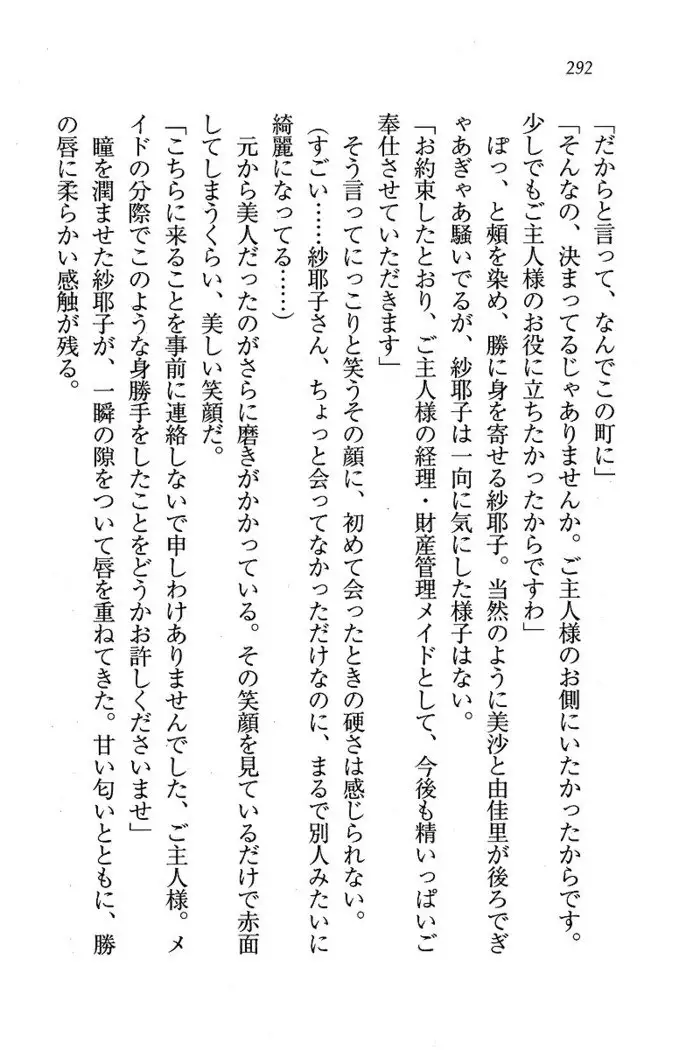 292
「だからと言って、なんでこの町に」
「そんなの、決まってるじゃありませんか。ご主人様のお側にいたかったからです。
少しでもご主人様のお役に立ちたかったからですわ」
ぽっ、と頰を染め、勝に身を寄せる紗耶子。当然のように美沙と由佳里が後ろでぎ
ゃあぎゃあ騒いでるが、紗耶子は一向に気にした様子はない。
「お約束したとおり、ご主人様の経理・財産管理メイドとして、今後も精いっぱいご
奉仕させていただきます」
そう言ってにっこりと笑うその顔に、初めて会ったときの硬さは感じられない。
(すごい……紗耶子さん、ちょっと会ってなかっただけなのに、まるで別人みたいに
綺麗になってる……)
元から美人だったのがさらに磨きがかかっている。その笑顔を見ているだけで赤面
してしまうくらい、美しい笑顔だ。
「こちらに来ることを事前に連絡しないで申しわけありませんでした、ご主人様。メ
イドの分際でこのような身勝手をしたことをどうかお許しくださいませ」
瞳を潤ませた紗耶子が、一瞬の隙をついて唇を重ねてきた。甘い匂いとともに、勝
の唇に柔らかい感触が残る。